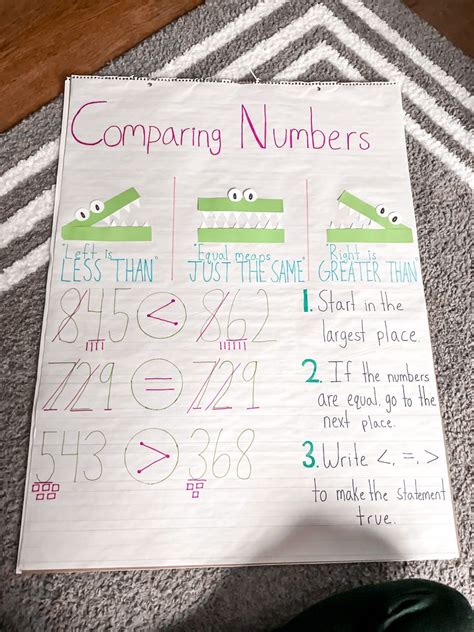 Comparing Numbers
"Left is
LESS THAN"
"Equal means
JUST THE SAME"
"Right is
GREATER THAN"
845 < 862
729 = 729
543 > 368
1. Start in the
largest place.
2. If the numbers
are equal, go to the
next place.
3. Write <, =, >
to make the statement
true.